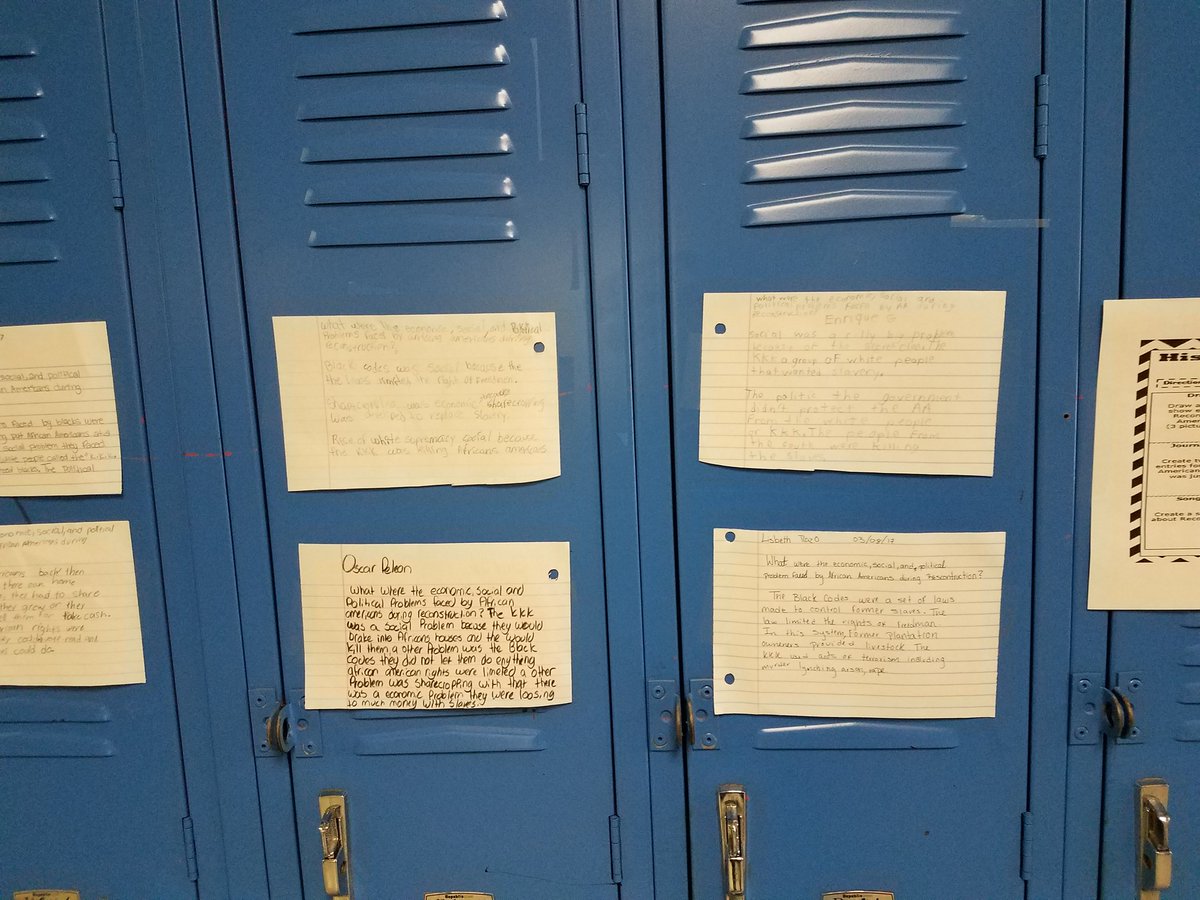 social, and political
an Americans during
faced by blacks were
put African Americans still
social problem they faced
white people called the K.K.K.
blacks, the Political
economic, social, and political
African Americans during
back then
there own home
they had to share
them for take cash.
rights were
could vote and
could do.
What were the economic, social, and Political
Problems faced by african americans during
reconstruction?
Black codes was social because the
the laws limited the right of freedmen.
Sharecropping was economic because sharecropping
was to replace slavery
Rise of white supremacy social because
the KKK was killing Africans americans
Oscar Deleon
What where the economic, social and
Political Problems faced by African
americans doring reconstruction? The KKK
was a social Problem becase they would
brake into Africans houses and the would
kill them a other Problem was the Black
Codes they did not let them do enything
african american rights were limeted a other
Problem was sharecropping with that there
was a economic Problem they were loosing
to much money with slaves.
what were the economic, social and
Political problems faced by AA during
reconstruction?
Enrique G
social was a big problem
the
KKK a group of white people
that wanted slavery.
The politic the government
didn't protect the AA
from the people
KKK. The people from
the south were killing
the slaves
Lisbeth 03/08/17
What were the economic, social, and, political
problem faced by African Americans during Rescontraction?
The Black Codes were a set of laws
made to control former slaves. The
law limited the rights of Freedman.
In this system, former plantation
owners provided livestock The
KKK used acts of terrorism including
murder lynching arson, rape
His
Directio
Draw a
show e
Recon
Amer
(3 pictu
Journ
Create tw
entries for
American
was ju
Song
Create a s
about Reco
Republic
Republic
Republic